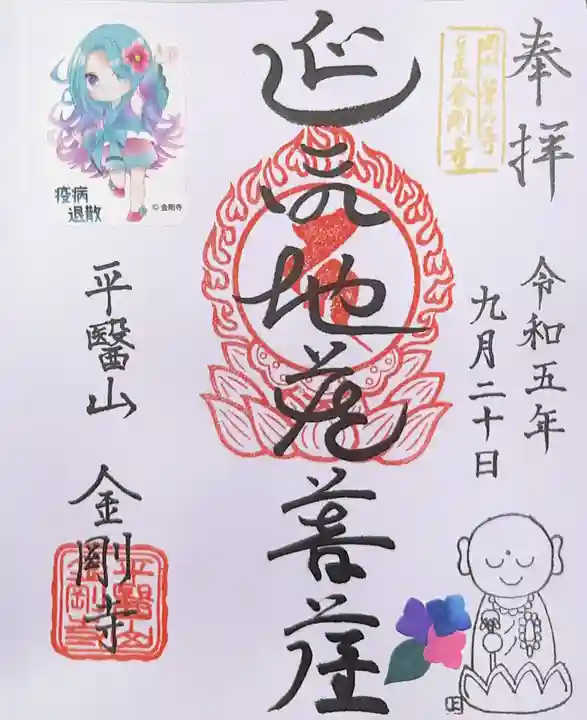 奉拝
令和五年
九月二十日
延命地蔵菩薩
平醫山 金剛寺
疫病
退散
© 金剛寺
平醫山
金剛寺